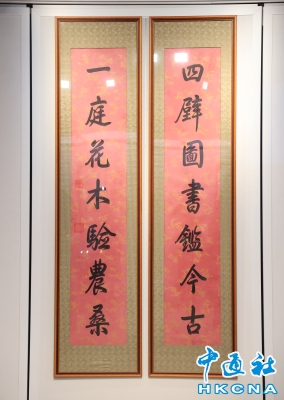 四壁圖書鑑今古
一庭花木驗農桑
中通社
HKCNA